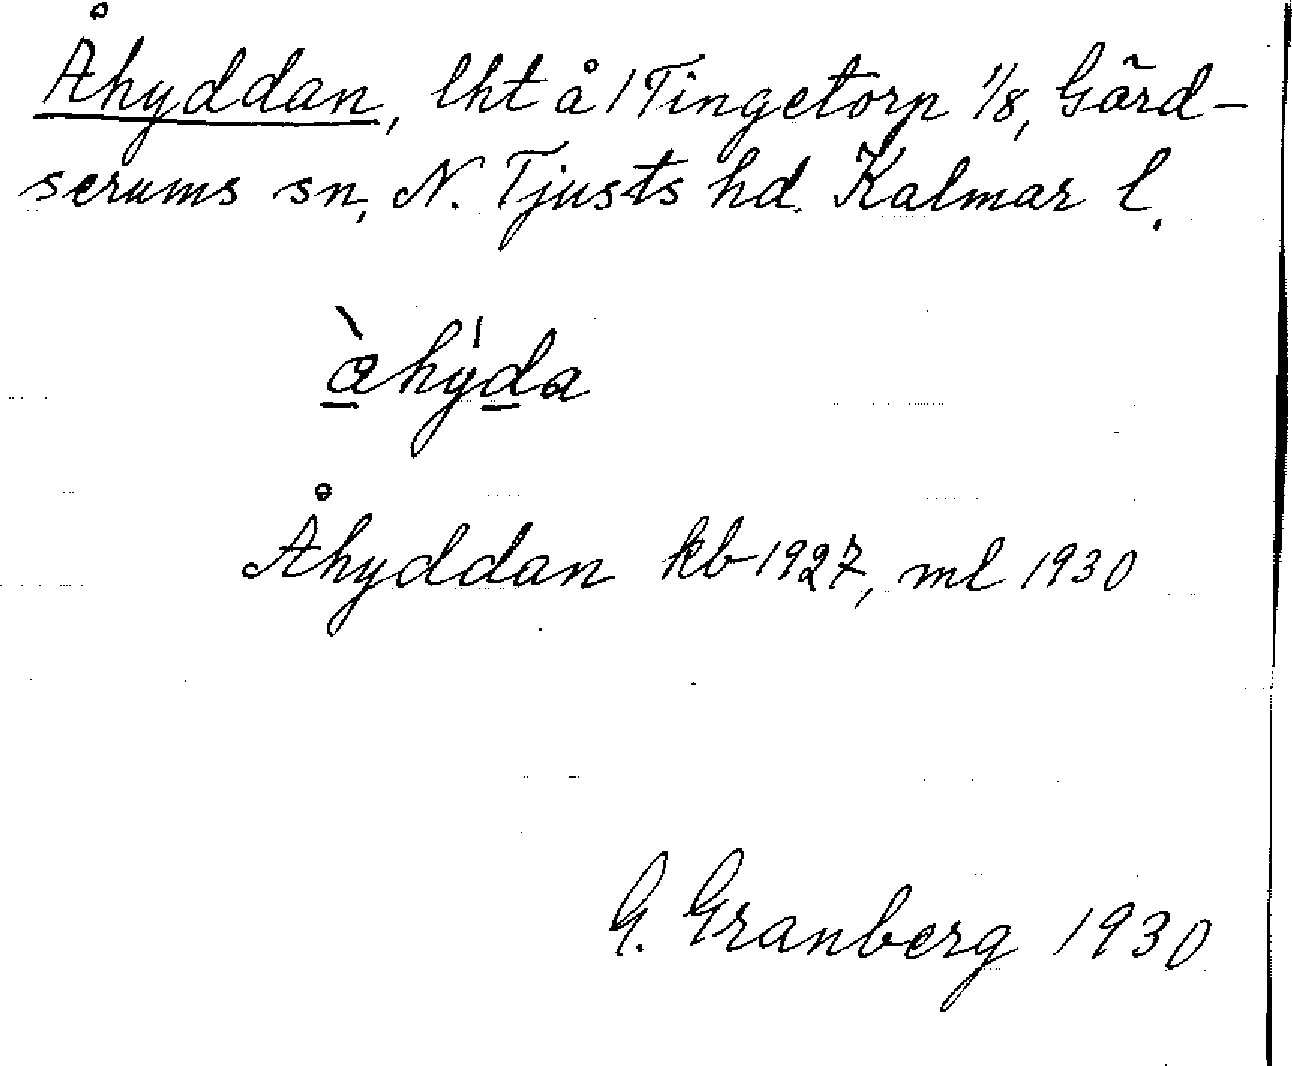 Åhyddan, lht å 1 Tingetorp 1/8, Gärd-
serums sn, N. Tjusts hd. Kalmar l.
å̀hýda
Åhyddan kb 1927, ml 1930
G. Granberg 1930